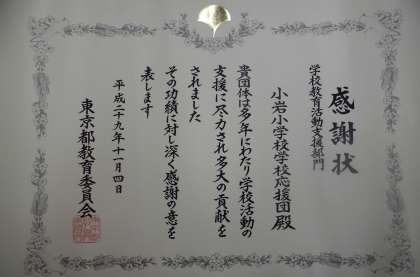 感謝状
学校教育活動支援部門
小岩小学校学校応援団殿
貴団体は多年にわたり学校活動の
支援に尽力され多大の貢献を
されました
その功績に対し深く感謝の意を
表します
平成二十九年十一月四日
東京都教育委員会